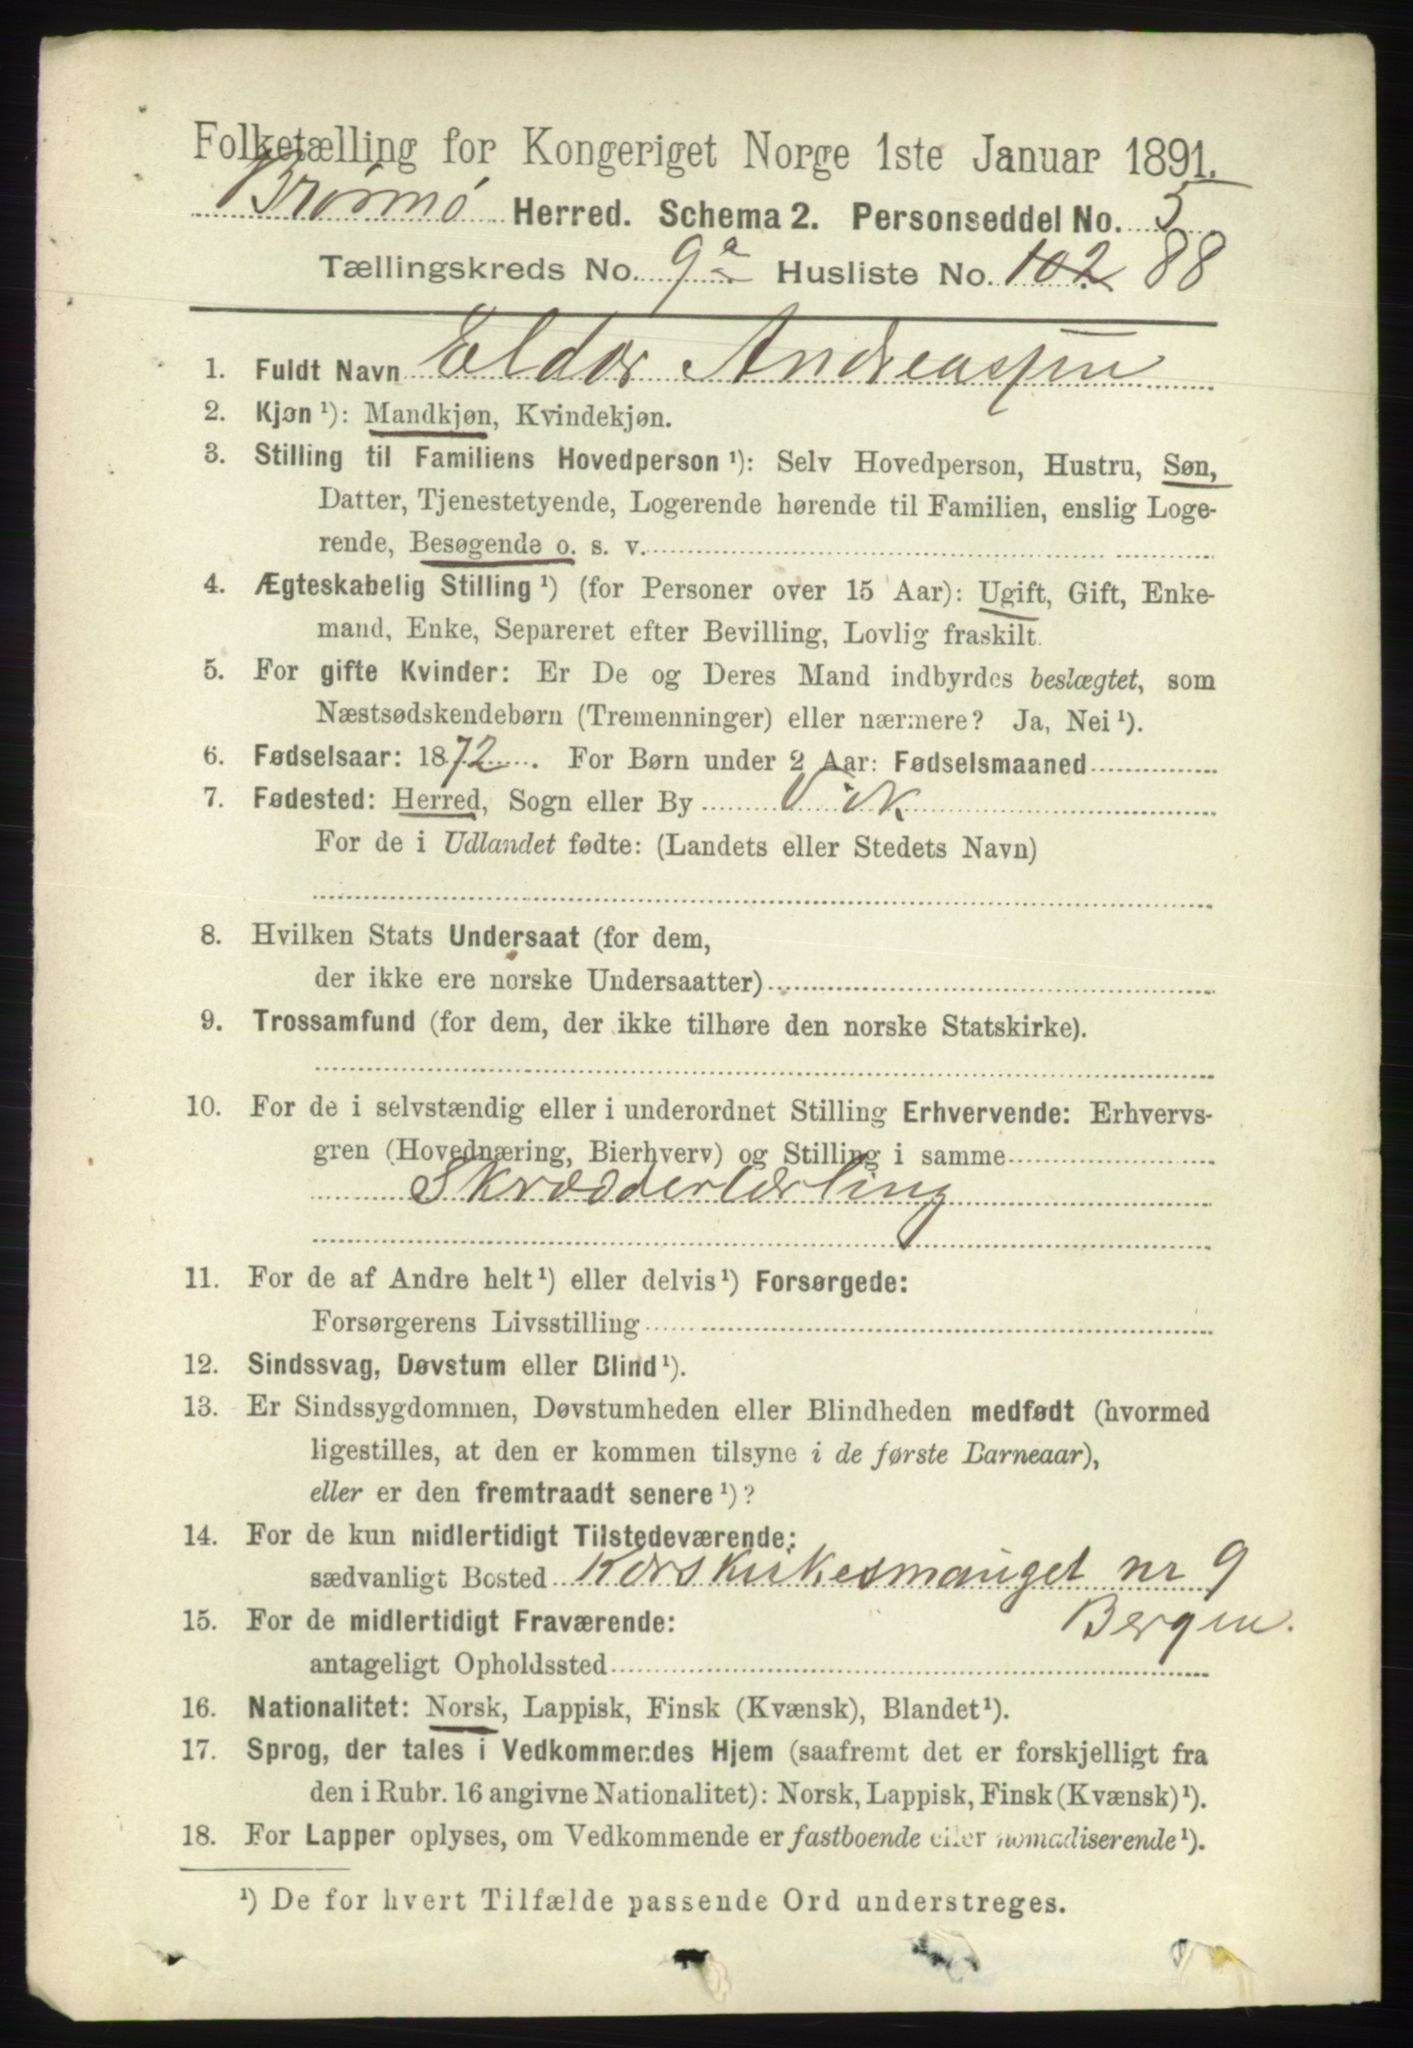 Folketælling for Kongeriget Norge 1ste Januar 1891.
Brønnø Herred. Schema 2. Personseddel No. 5
Tællingskreds No. 9a Husliste No. 102 88
1. Fuldt Navn Eldor Andreassen
2. Kjøn ¹): Mandkjøn, Kvindekjøn.
3. Stilling til Familiens Hovedperson ¹): Selv Hovedperson, Hustru, Søn,
Datter, Tjenestetyende, Logerende hørende til Familien, enslig Loge-
rende, Besøgende o. s. v.
4. Ægteskabelig Stilling ¹) (for Personer over 15 Aar): Ugift, Gift, Enke-
mand, Enke, Separeret efter Bevilling, Lovlig fraskilt.
5. For gifte Kvinder: Er De og Deres Mand indbyrdes beslægtet, som
Næstsødskendebørn (Tremenninger) eller nærmere? Ja, Nei ¹).
6. Fødselsaar: 1872. For Børn under 2 Aar: Fødselsmaaned
7. Fødested: Herred, Sogn eller By Vik
For de i Udlandet fødte: (Landets eller Stedets Navn)
8. Hvilken Stats Undersaat (for dem,
der ikke ere norske Undersaatter)
9. Trossamfund (for dem, der ikke tilhøre den norske Statskirke).
10. For de i selvstændig eller i underordnet Stilling Erhvervende: Erhvervs-
gren (Hovednæring, Bierhverv) og Stilling i samme
Skrædderlærling
11. For de af Andre helt ¹) eller delvis ¹) Forsørgede:
Forsørgerens Livsstilling
12. Sindssvag, Døvstum eller Blind ¹).
13. Er Sindssygdommen, Døvstumheden eller Blindheden medfødt (hvormed
ligestilles, at den er kommen tilsyne i de første Barneaar),
eller er den fremtraadt senere ¹)?
14. For de kun midlertidigt Tilstedeværende:
sædvanligt Bosted Korskirkesmauget nr 9
Bergen.
15. For de midlertidigt Fraværende:
antageligt Opholdssted
16. Nationalitet: Norsk, Lappisk, Finsk (Kvænsk), Blandet ¹).
17. Sprog, der tales i Vedkommendes Hjem (saafremt det er forskjelligt fra
den i Rubr. 16 angivne Nationalitet): Norsk, Lappisk, Finsk (Kvænsk) ¹).
18. For Lapper oplyses, om Vedkommende er fastboende eller nomadiserende ¹).
¹) De for hvert Tilfælde passende Ord understreges.